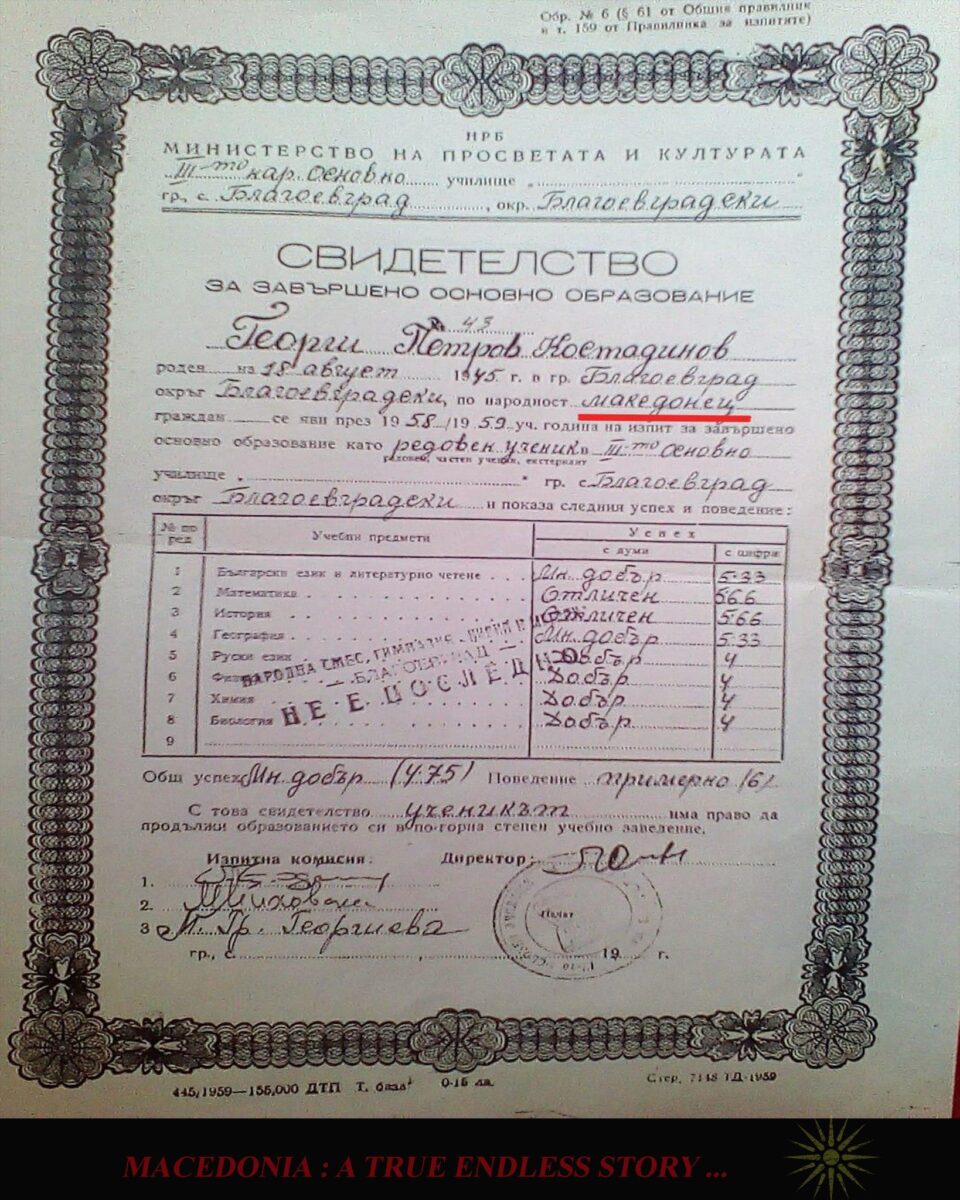 Обр. № 6 (§ 61 от Общия правилник
и т. 159 от Правилника за изпитите)
НРБ
МИНИСТЕРСТВО НА ПРОСВЕТАТА И КУЛТУРАТА
III-то нар. Основно училище „ "
гр., с. Благоевград, окр. Благоевградски
СВИДЕТЕЛСТВО
ЗА ЗАВЪРШЕНО ОСНОВНО ОБРАЗОВАНИЕ
№ 43
Георги Петров Костадинов
роден на 18 август 1945 г. в гр. Благоевград
окръг Благоевградски, по народност македонец
граждан се яви през 1958/1959 уч. година на изпит за завършено
основно образование като редовен ученик в III-то Основно
редовен, частен ученик, екстернат
училище „ " гр. с. Благоевград
окръг Благоевградски и показа следния успех и поведение:
№ по ред Учебни предмети Успех
с думи с цифри
1 Български език и литературно четене . . . Мн. добър 5·33
2 Математика Отличен 5·66
3 История Отличен 5·66
4 География Мн. добър 5·33
5 Руски език Добър 4
6 Добър 4
7 Химия Добър 4
8 Биология Добър 4
9
НАРОДНА СМЕС. ГИМНАЗИЯ
— БЛАГОЕВГРАД —
Общ успех Мн. добър (4·75) Поведение примерно (6)
С това свидетелство ученикът има право да
продължи образованието си в по-горна степен учебно заведение.
Изпитна комисия: Директор:
1.
2.
3 П. Гр. Георгиева
Печат
гр., с. , 19 г.
445/1959—155,000 ДТП Т. база 0·15 лв. Стер. 7148 ТД-1959
MACEDONIA : A TRUE ENDLESS STORY ...